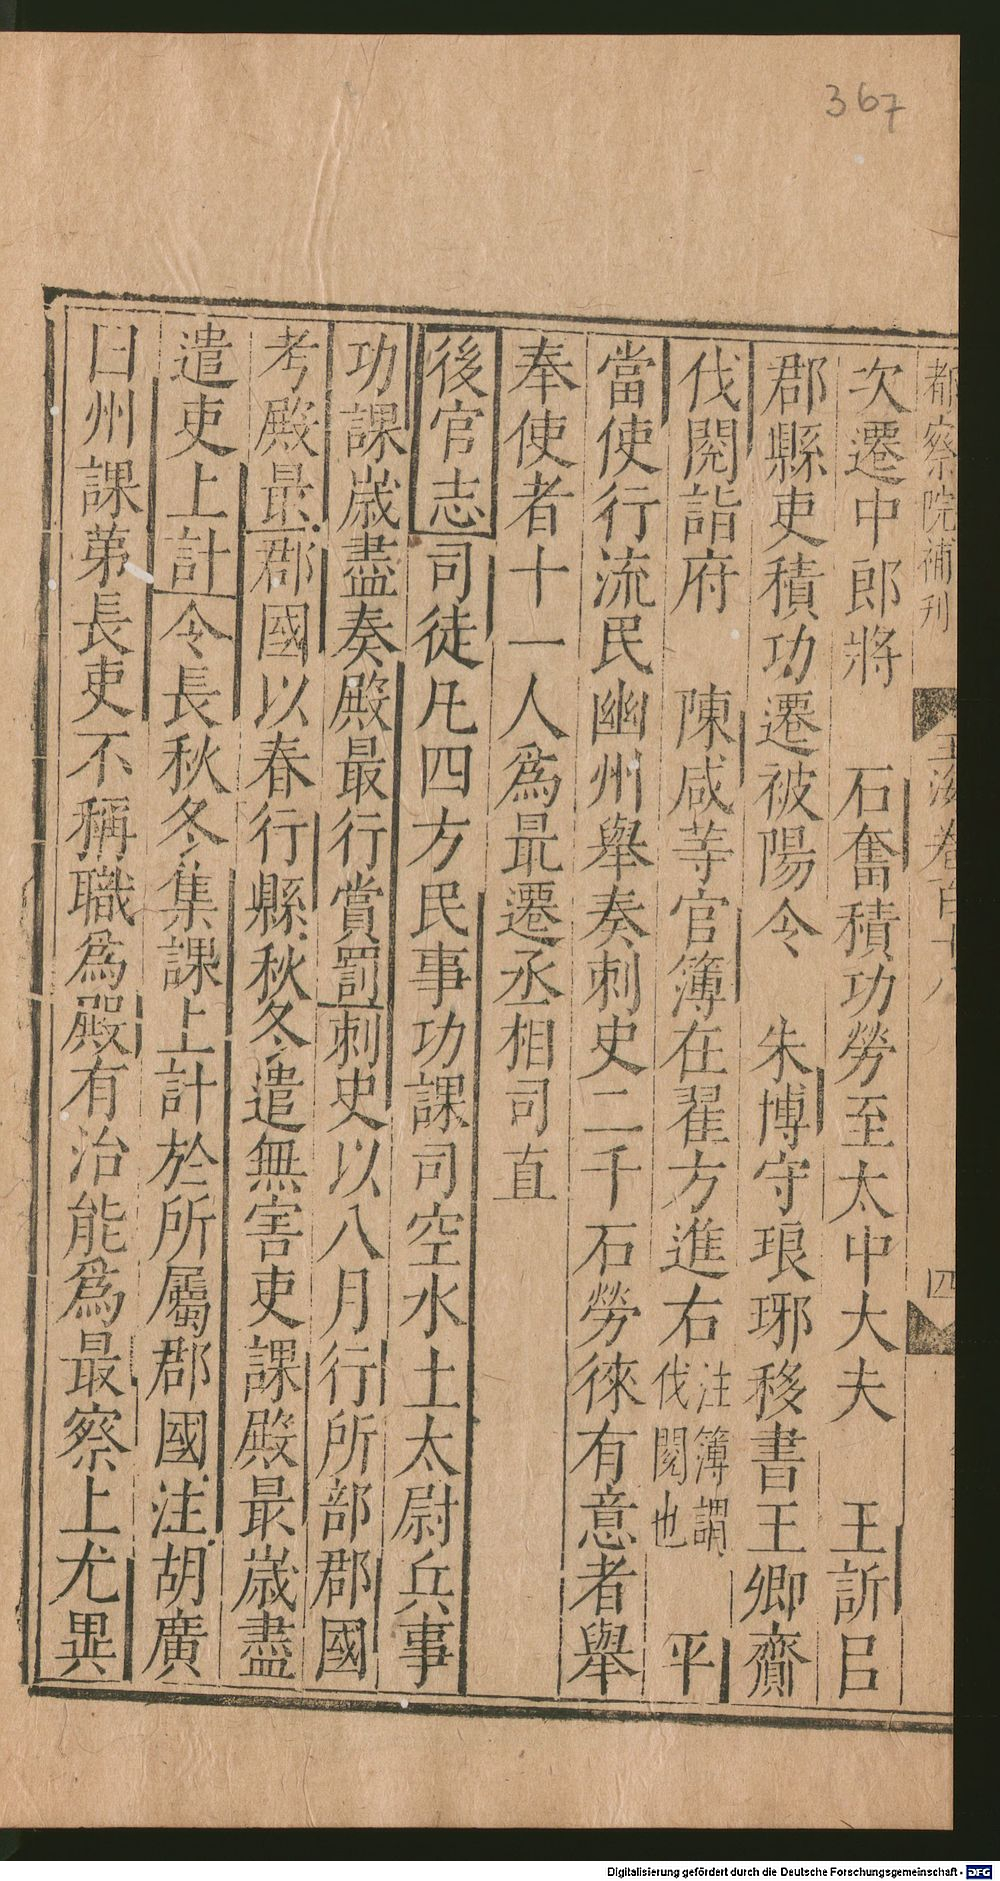 367
都察院補刊 玉海卷百十八 四
次遷中郎將 石奮積功勞至太中大夫 王訢㠯
郡縣吏積功遷被陽令 朱博守琅琊移書王卿齎
伐閱詣府 陳咸等官簿在翟方進右注簿謂伐閱也 平
當使行流民幽州舉奏刺史二千石勞徠有意者舉
奉使者十一人為最遷丞相司直
後官志司徒凡四方民事功課司空水土太尉兵事
功課歲盡奏殿最行賞罰刺史以八月行所部郡國
考殿最郡國以春行縣秋冬遣無害吏課殿最歲盡
遣吏上計令長秋冬集課上計於所屬郡國注胡廣
曰州課第長吏不稱職為殿有治能為最察上尤異
Digitalisierung gefördert durch die Deutsche Forschungsgemeinschaft - DFG